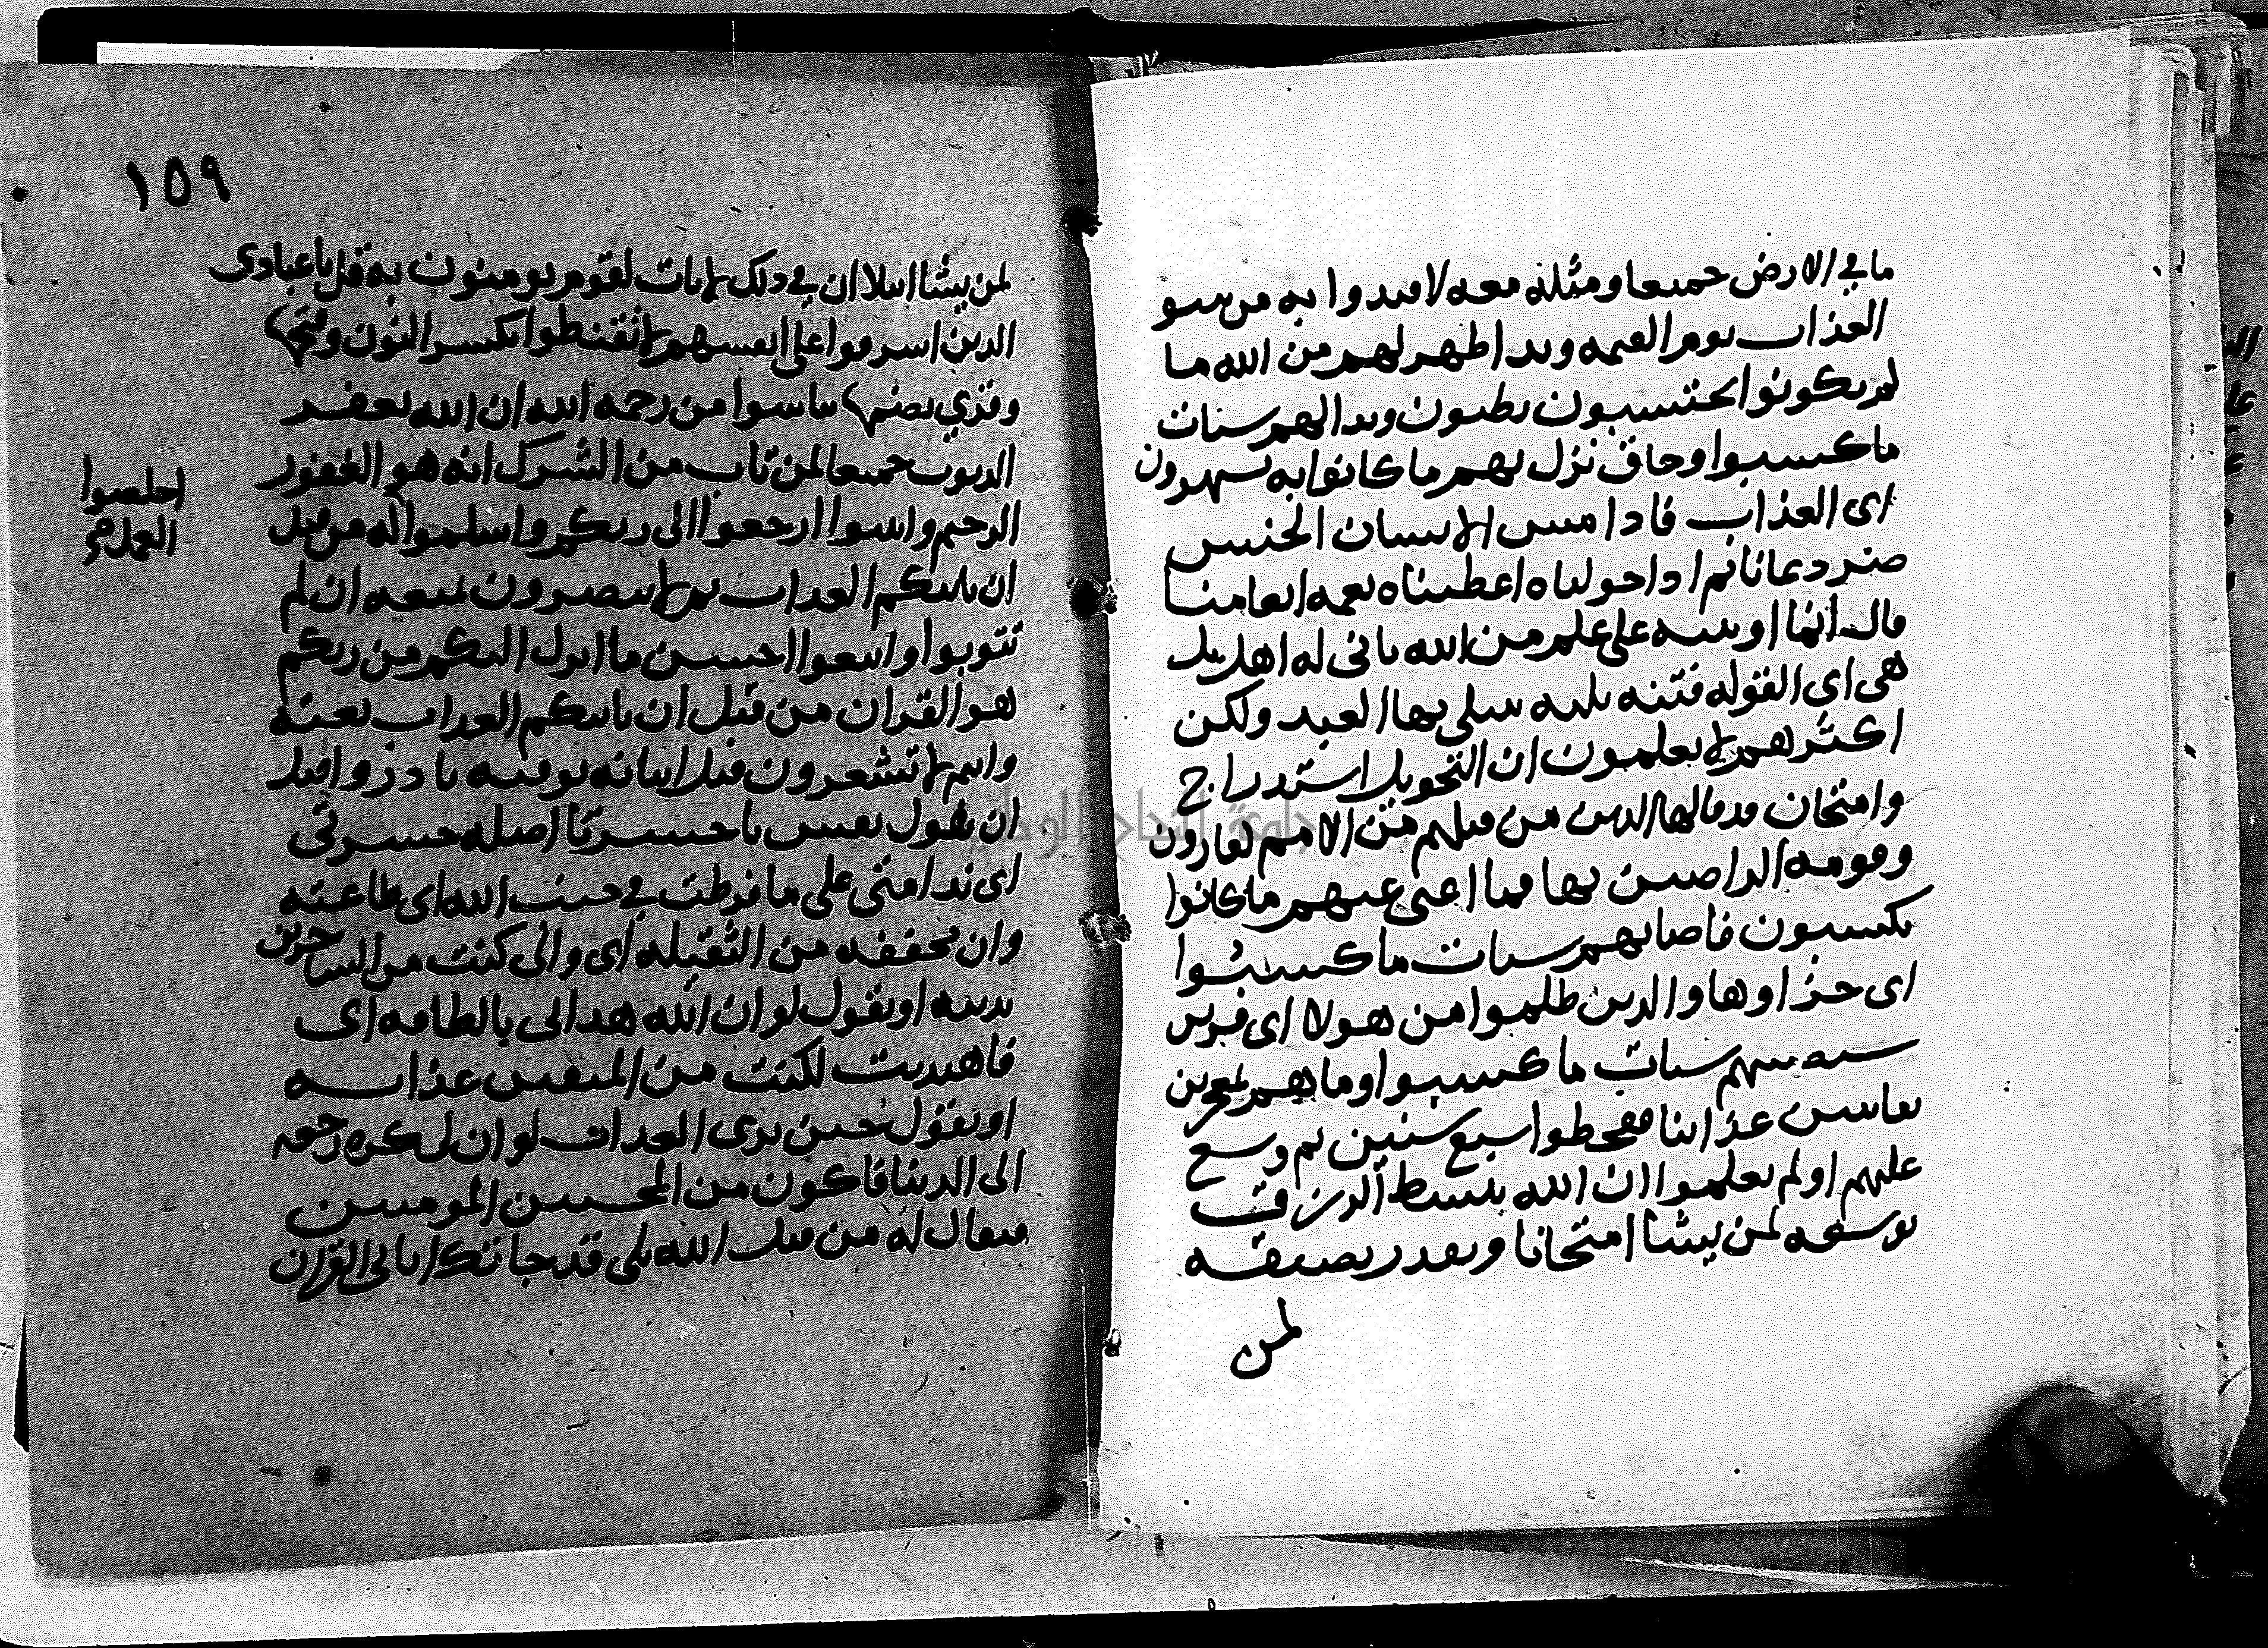 ما في الارض جميعا ومثله معه لافتدوا به من سو
العذاب يوم القيمه وبدا ظهر لهم من الله ما
لم يكونوا يحتسبون يظنون وبدا لهم سيات
ما كسبوا وحاق نزل بهم ما كانوا به يستهزون
اى العذاب فاذا مس الانسان الجنس
ضر دعانا ثم اذا خولناه اعطيناه نعمه انعاما منا
قال انما اوتيته على علم من الله باني له اهل بل
هى اى القوله فتنه بليه يبتلي بها العبد ولكن
اكثرهم لا يعلمون ان التخويل استدراج
وامتحان قد قالها الذين من قبلهم من الامم كقارون
وقومه الراضين بها فما اغنى عنهم ما كانوا
يكسبون فاصابهم سيات ما كسبوا
اى جزاوها والذين ظلموا من هولا اى قريش
سيصيبهم سيات ما كسبوا وما هم بمعجزين
بفايتين عذابنا فقحطوا سبع سنين ثم وسع
عليهم اولم يعلموا ان الله يبسط الرزق
يوسعه لمن يشا امتحانا ويقدر يضيقه
لمن
١٥٩
لمن يشا ابتلا ان في ذلك لايات لقوم يومنون به قل يا عبادى
الذين اسرفوا على انفسهم لا تقنطوا بكسر النون وفتحها
وقري بضمها تياسوا من رحمه الله ان الله يغفر
الذنوب جميعا لمن تاب من الشرك انه هو الغفور
الرحيم وانيبوا ارجعوا الى ربكم واسلموا له من قبل
اخلصوا
العمل
ان ياتيكم العذاب ثم لا تنصرون بمنعه ان لم
تتوبوا واتبعوا احسن ما انزل اليكم من ربكم
هو القران من قبل ان ياتيكم العذاب بغته
وانتم لا تشعرون قبل اتيانه بوقته بادروا قبل
ان تقول نفس يا حسرتا اصله حسرتي
اى ندامتي على ما فرطت في جنب الله اى طاعته
وان مخففه من الثقيله اى واني كنت من الساخرين
بدينه او تقول لو ان الله هداني بالطاعه اى
فاهتديت لكنت من المتقين عذابه
او تقول حين ترى العذاب لو ان لي كره رجعه
الى الدنيا فاكون من المحسنين المومنين
فيقال له من قبل الله بلى قد جاتك اياتي القران